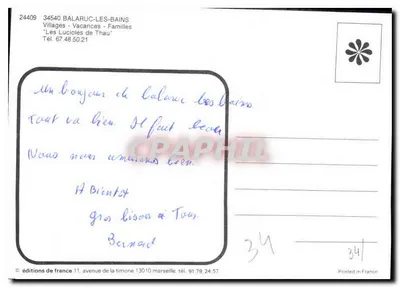 24409 34540 BALARUC-LES-BAINS
Villages - Vacances - Familles
"Les Lucioles de Thau"
Tél. 67.48.50.21
Un bonjour de balaruc les bains
Tout va bien. Il fait beau
Nous nous amusons bien
CPAPHIL
A Bientot
gros bisous à Tous
Bernard
34
34/
© éditions de france 11, avenue de la timone, 13010 marseille, tél. 91.79.24.57
Printed in France